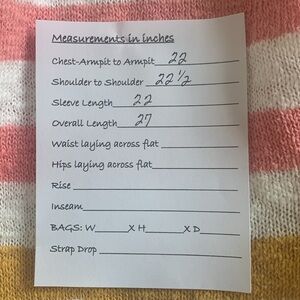 Measurements in inches
Chest-Armpit to Armpit 22
Shoulder to Shoulder 22 1/2
Sleeve Length 22
Overall Length 27
Waist laying across flat
Hips laying across flat
Rise
Inseam
BAGS: W X H X D
Strap Drop